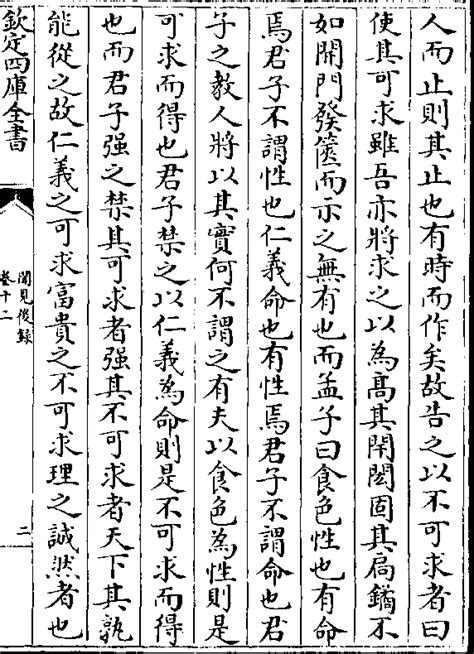 人而止則其止也有時而作矣故告之以不可求者曰
使其可求雖吾亦將求之以為髙其閈閎固其扃鐍不
如開門發篋而示之無有也而孟子曰食色性也有命
焉君子不謂性也仁義命也有性焉君子不謂命也君
子之教人將以其實何不謂之有夫以食色為性則是
可求而得也君子禁之以仁義為命則是不可求而得
也而君子强之禁其可求者强其不可求者天下其孰
能從之故仁義之可求富貴之不可求理之誠然者也
欽定四庫全書
聞見後錄
卷十二
二